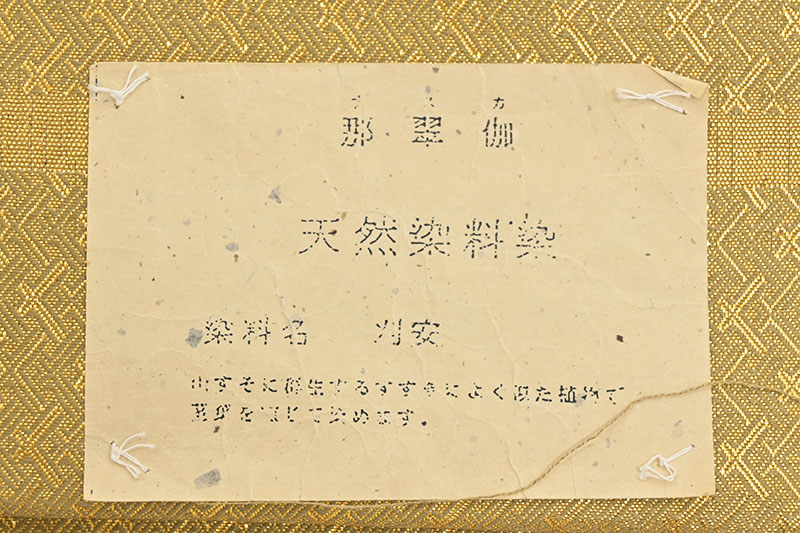 ナスカ
那翠伽
天然染料染
染料名 刈安
山すそに群生するすすきによく似た植物で
茎葉を煎じて染めます。